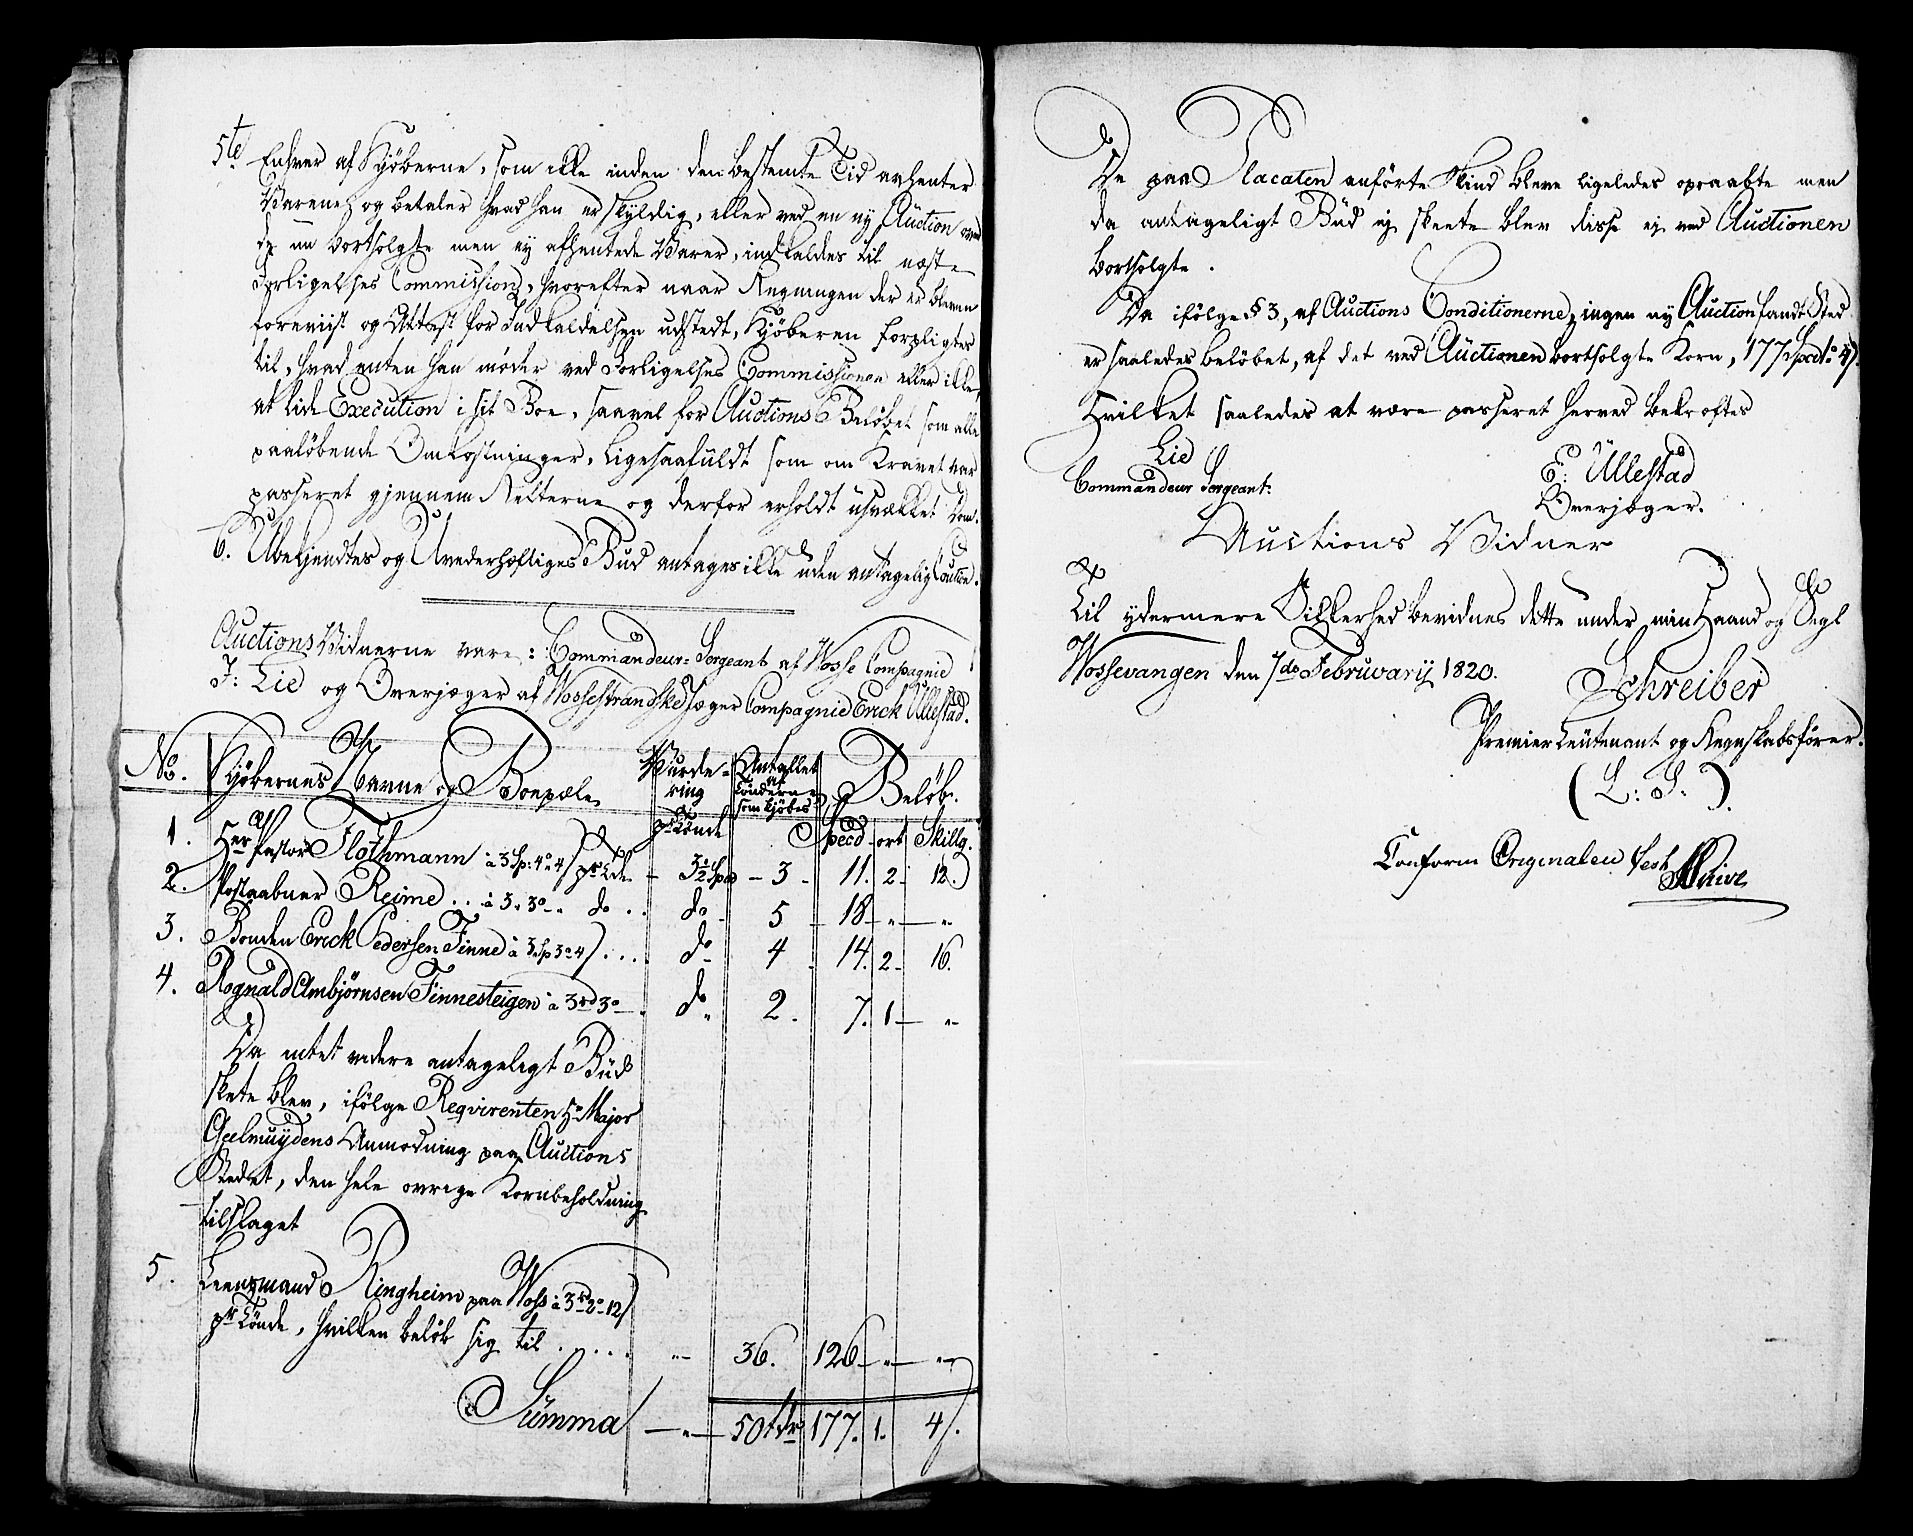 5te Enhver af Kjöberne, som ikke inden den bestemte Tid avhenter
Varene, og betaler hvad han er skyldig, eller ved en ny Auction over
de nu bortsolgte men ey afhentede Varer, indkaldes til næste
Forligelses Commission, hvorefter naar Regningen der er bleven
foreviist og Attest for Indkaldelsen udstedt, Kjöberen forpligtes
til, hvad enten han möder ved Forligelses Commissionen eller ikke,
at lide Execution i sit Boe, saavel for Auctions Belöbet som alle
paalöbende Omkostninger, ligesaafuldt som om Kravet var
passeret gjennem Retterne og derfor erholdt usvækket Dom.
6. Ubekjendtes og Uvederhæftiges Bud antages ikke uden antagelig Caution.
Auctions Vidnerne vare: Commandeur-Sergeant af Vosse Compagnie
J: Lie og Overjæger af Vossestrandske Jæger Compagnie Erick Üllestad.
No. Kjöbernes Navne og Boepæle Vurde- Antallet Belöb.
ring af
Tönderne
pr Tönde som kjöbes Specd ort Skillg.
1. Hr Pastor Flothmann à 3 Sp: 4o 4 / pr Tde – 3½ Spd – 3 – 11. 2. 12.
2. Postaabner Reime . . à 3. 3o – „ do . . do – 5 – 18 – „ – „
3. Bonden Erick Pedersen Finne à 3 Sp 3o 4 / . . . . do – 4 . 14. 2. 16.
4. Rognald Ambjørnsen Finnesteigen à 3rd 3o – . do „ 2. 7. 1 – „
Da intet videre antageligt Büd
skete blev, ifölge Reqvirenten Hr Major
Geelmuydens Anmodning paa Auctions
Stedet, den hele övrige Kornbeholdning
tilslaget
5. Leensmand Ringheim paa Voss à 3rd 2o 12 /
pr Tönde, hvilken belöb sig til . . . . . „ – 36. 126 – „ – „
Summa – „ – 50 tdr 177. 1. 4 /.
De paa Placaten anförte Skind bleve ligeledes opraabte men
da antageligt Büd ej skeete blev disse ej ved Auctionen
bortsolgte.
Da ifölge § 3, af Auctions Conditionerne, ingen ny Auction fandt Sted
er saaledes belöbet, af det ved Auctionen bortsolgte Korn, 177 Specd 1o 4 /.
Hvilket saaledes at være passeret herved bekræftes
Lie E: Üllestad
Commandeur Sergeant: Overjæger.
Auctions Vidner
Til ydermere Sikkerhed bevidnes dette under min Haand og Segl
Vossevangen den 7de Februvary 1820.
Schreiber
Premier Leutenant og Regnskabsförer.
(L. S.).
Conform Originalen test